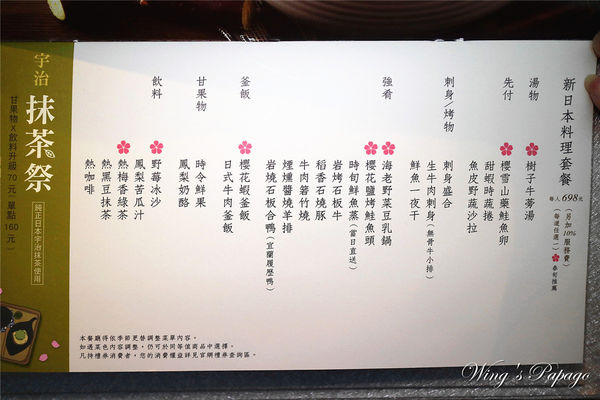 新日本料理套餐
每人698元
(另加10%服務費)
(每道任選一)
春旬推薦
湯物
樹子牛蒡湯
先付
櫻雪山藥鮭魚卵
甜蝦時蔬捲
魚皮野蔬沙拉
刺身/烤物
刺身盛合
生牛肉刺身(無骨牛小排)
鮮魚一夜干
強肴
海老野菜豆乳鍋
櫻花鹽烤鮭魚頭
時旬鮮魚蒸(當日直送)
岩烤石板牛
稻香石燒豚
牛肉箬竹燒
煙燻醬燒羊排
岩燒石板合鴨(宜蘭履歷鴨)
釜飯
櫻花蝦釜飯
日式牛肉釜飯
甘果物
時令鮮果
鳳梨奶酪
飲料
野莓冰沙
鳳梨苦瓜汁
熱梅香綠茶
熱黑豆抹茶
熱咖啡
本餐廳得依季節更替調整菜單內容。
如遇菜色內容調整,仍可於同等值商品中選擇。
凡持禮券消費者,您的消費權益詳見官網禮券查詢區。
宇治
抹茶祭
純正日本宇治抹茶使用
甘果物X飲料升級70元 單點160元
Wing's Papago